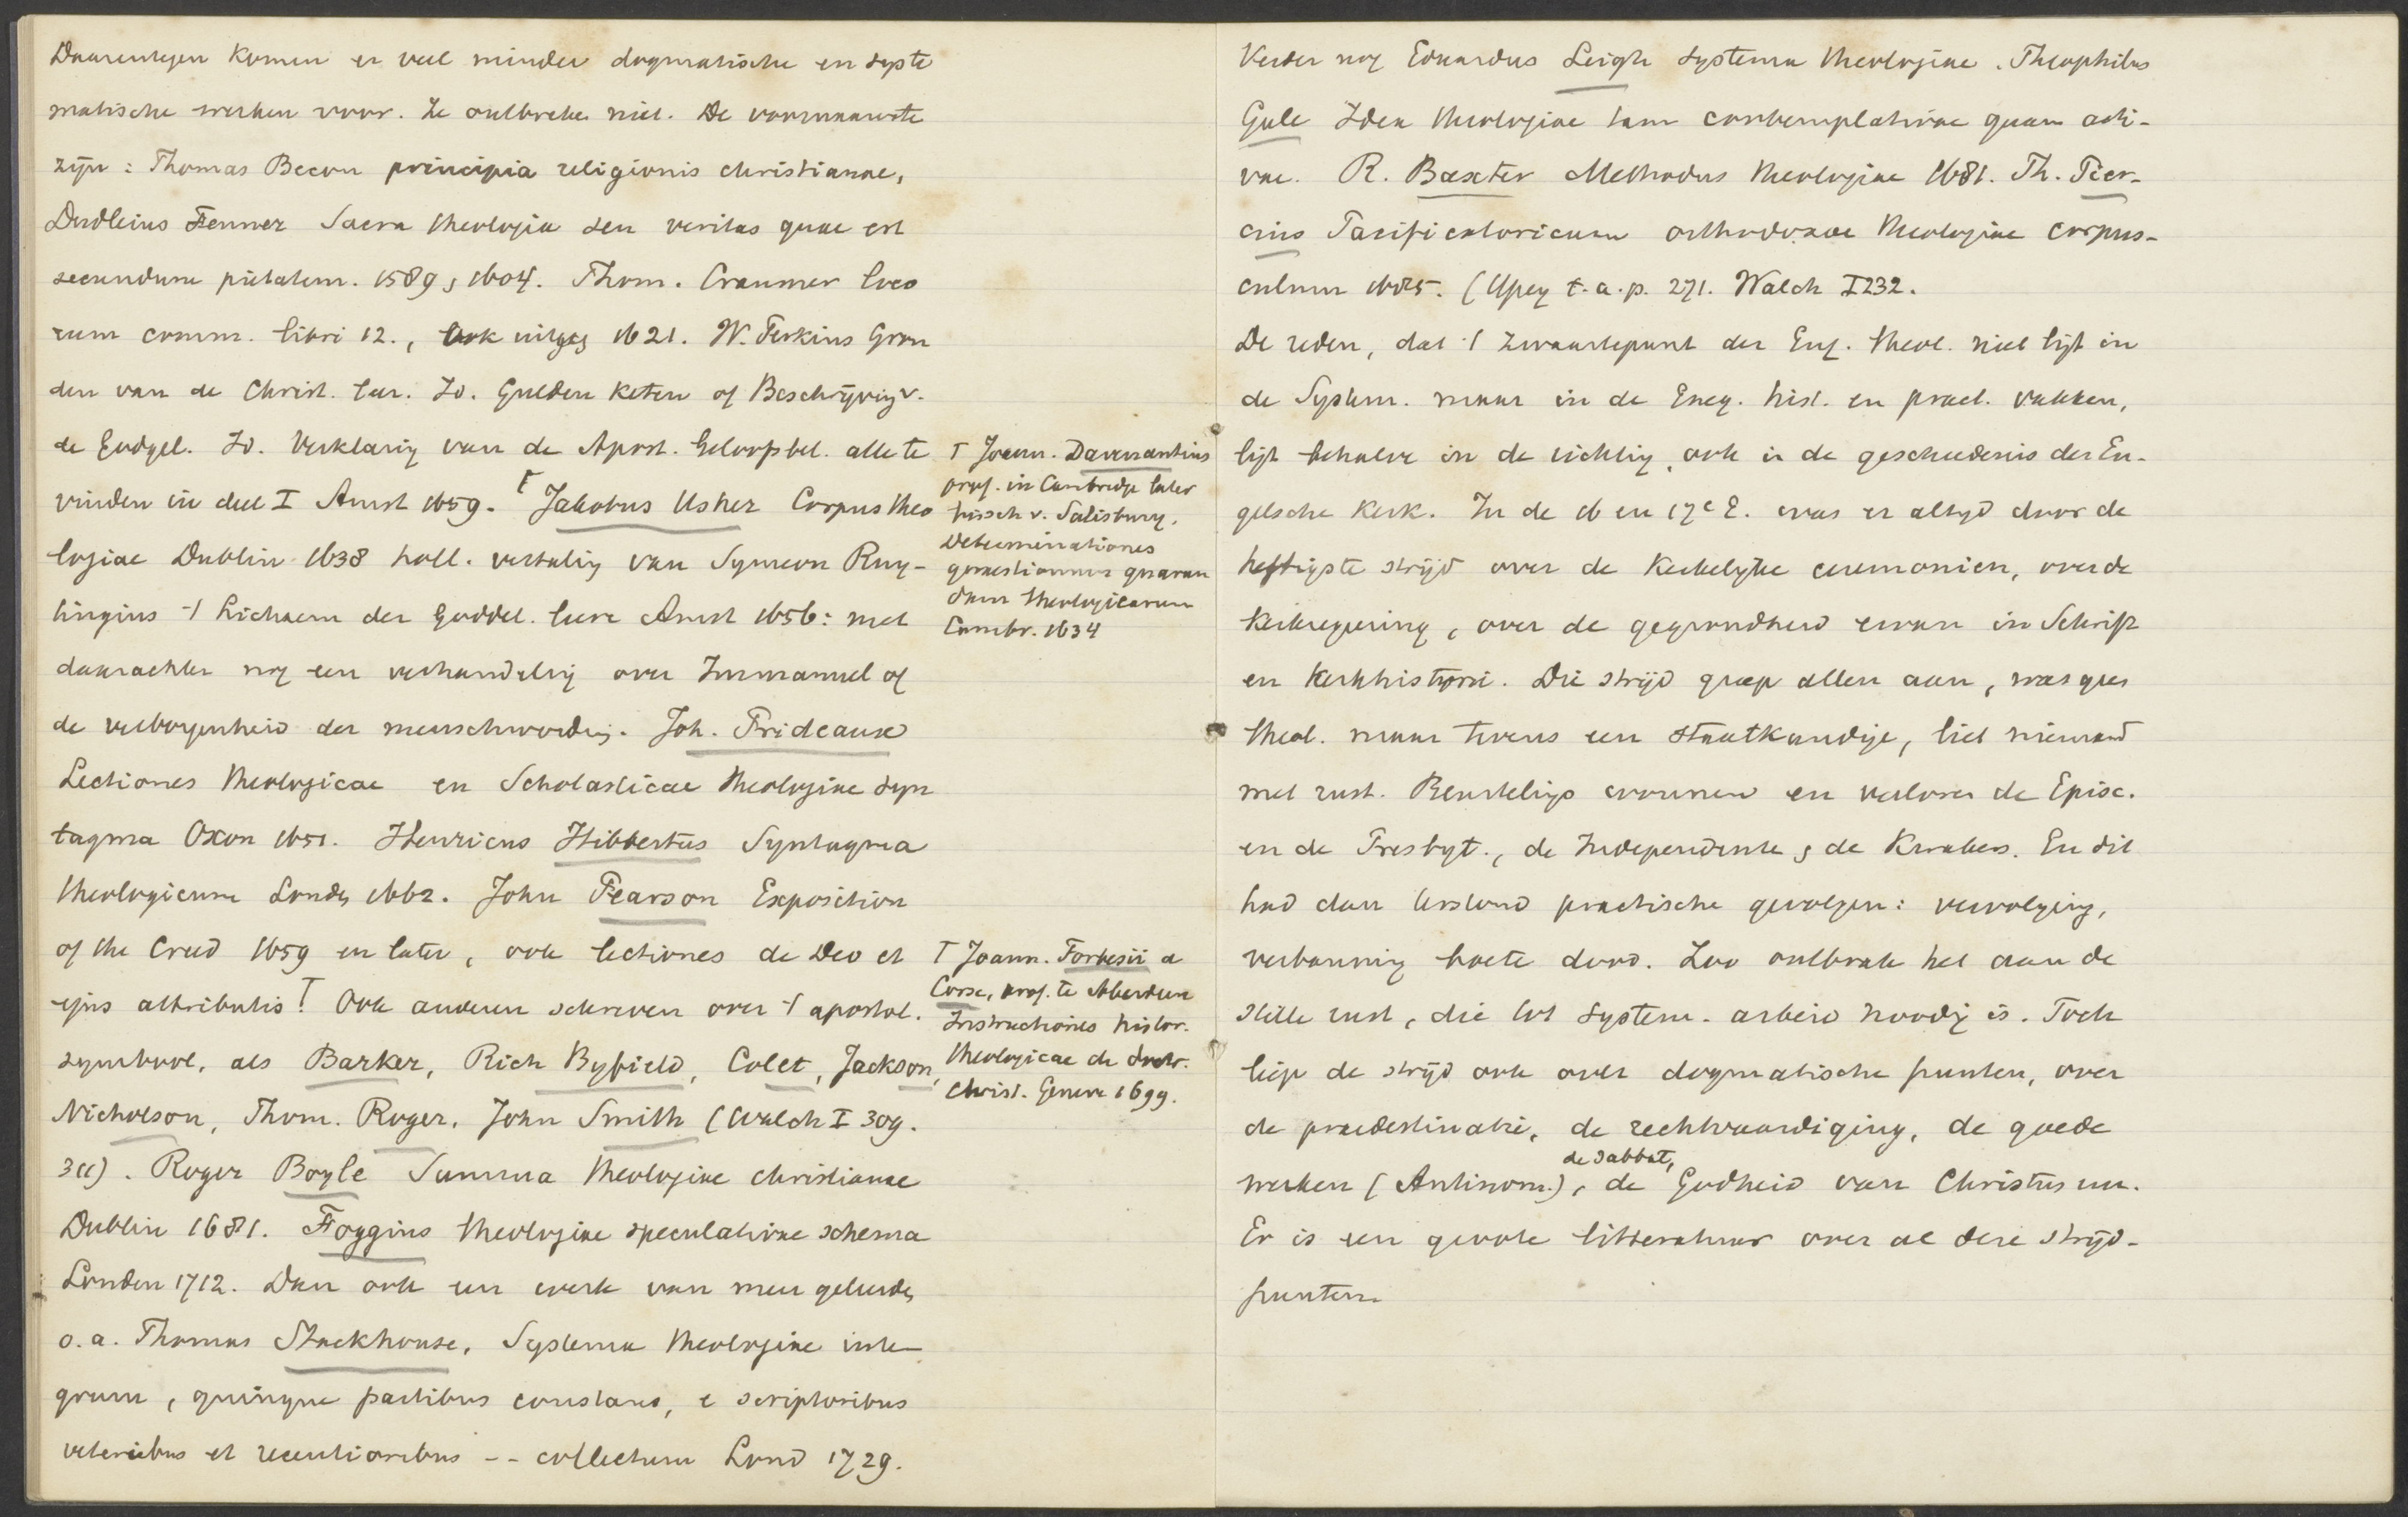 Daarentegen komen er veel minder dogmatische en syste
matische werken voor. Ze ontbreken niet. De voornaamste
zijn: Thomas Becon principia religionis christianae,
Dudleius Fenner Sacra theologia seu veritas quae est
secundum pietatem. 1589, 1604. Thom. Cranmer loco
rum comm. libri 12., Ook uitgeg 1621. W. Perkins Gron
den van de Christ. Leer. Id. Gulden keten of Beschrijving v.
de Godgel. Id. Verklaring van de Apost. Geloofsbel. alle te
vinden in deel I Amst 1659. ⌈ Jakobus Usher Corpus theo
logiae Dublin 1638 holl. vertaling van Symeon Ruy-
tingius 't Lichaem der Goddel. leere Amst 1656: met
daarachter nog een verhandeling over Immanuel of
de verborgenheid der menschwording. Joh. Prideaux
Lectiones theologicae en Scholasticae theologiae syn
tagma Oxon 1651. Henricus Hibbertus Syntagma
theologicum Londen 1662. John Pearson Exposition
of the Creed 1659 en later, ook lectiones de Deo et
ejus attributis. ⌈ Ook anderen schreven over 't apostol.
symbool, als Barker, Rich Byfield, Colet, Jackson,
Nicholson, Thom. Roger, John Smith (Walch I 309.
311). Roger Boyle Summa theologiae christianae
Dublin 1681. Foggius theologiae speculativae schema
Londen 1712. Dan ook een werk van meer geleerden
o.a. Thomas Stackhouse, Systema theologiae inte-
grum, quinque partibus constans, e scriptoribus
veteribus et recentioribus -- collectum Lond 1729.
⌈ Joann. Davenantius
prof. in Cambridge later
bissch v. Salisbury.
Determinationes
quaestionum quarun
dam theologicarum
Cambr. 1634
⌈ Joann. Forbesii a
Corse, prof. te Aberdeen
Instructiones histor.
theologicae de doctr.
Christ. Geneve 1699.
Verder nog Eduardus Leigh systema theologiae. Theophilus
Gale Idea theologiae tam contemplativae quam acti-
vae. R. Baxter Methodus theologiae 1681. Th. Pier-
cius Pacificatoricum orthodoxae theologiae corpus-
culum 1685. (Ypey t.a.p. 271. Walch I 232.
De reden, dat 't zwaartepunt der Eng. theol. niet ligt in
de System. maar in de Exeg. hist. en pract. vakken,
ligt behalve in de richting, ook in de geschiedenis der En-
gelsche Kerk. In de 16 en 17e E. was er altijd door de
heftigste strijd over de Kerkelijke ceremonien, over de
Kerkregeering, over de gegrondheid ervan in Schrift
en Kerkhistorie. Die strijd greep allen aan, was geen
theol. maar tevens een staatkundige, liet niemand
met rust. Beurtelings wonnen en verloren de Episc.
en de Presbyt., de Independenten, de Kwakers. En dit
had dan terstond practische gevolgen: vervolging,
verbanning boete dood. Zoo ontbrak het aan de
stille rust, die tot system. arbeid noodig is. Toch
liep de strijd ook over dogmatische punten, over
de praedestinatie, de rechtvaardiging, de goede
werken (Antinom.), de sabbat, de Godheid van Christus enz.
Er is een groote litteratuur over al deze strijd-
punten.